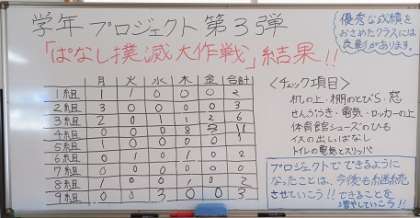 学年プロジェクト第3弾
「ばなし撲滅大作戦」結果!!
優秀な成績を
おさめたクラスには
表彰があります。
月 火 水 木 金 合計
1組 1 1 0 0 0 2
2組 3 0 0 0 0 3
3組 2 0 1 1 2 6
4組 0 0 0 8 11
5組 1 0 0 0 0 1
6組 0 1 0 1 0 2
7組 0 0 0 0 0 0
8組 1 0 0 0 2
9組 0 0 3 0 0 3
<チェック項目>
机の上・棚のとびら、窓
せんぷうき・電気・ロッカーの上
体育館シューズのひも
イスの出しっぱなし
トイレの電気とスリッパ
プロジェクトでできるように
なったことは、今後も継続
させていこう!!できることを
増やしていこう!!